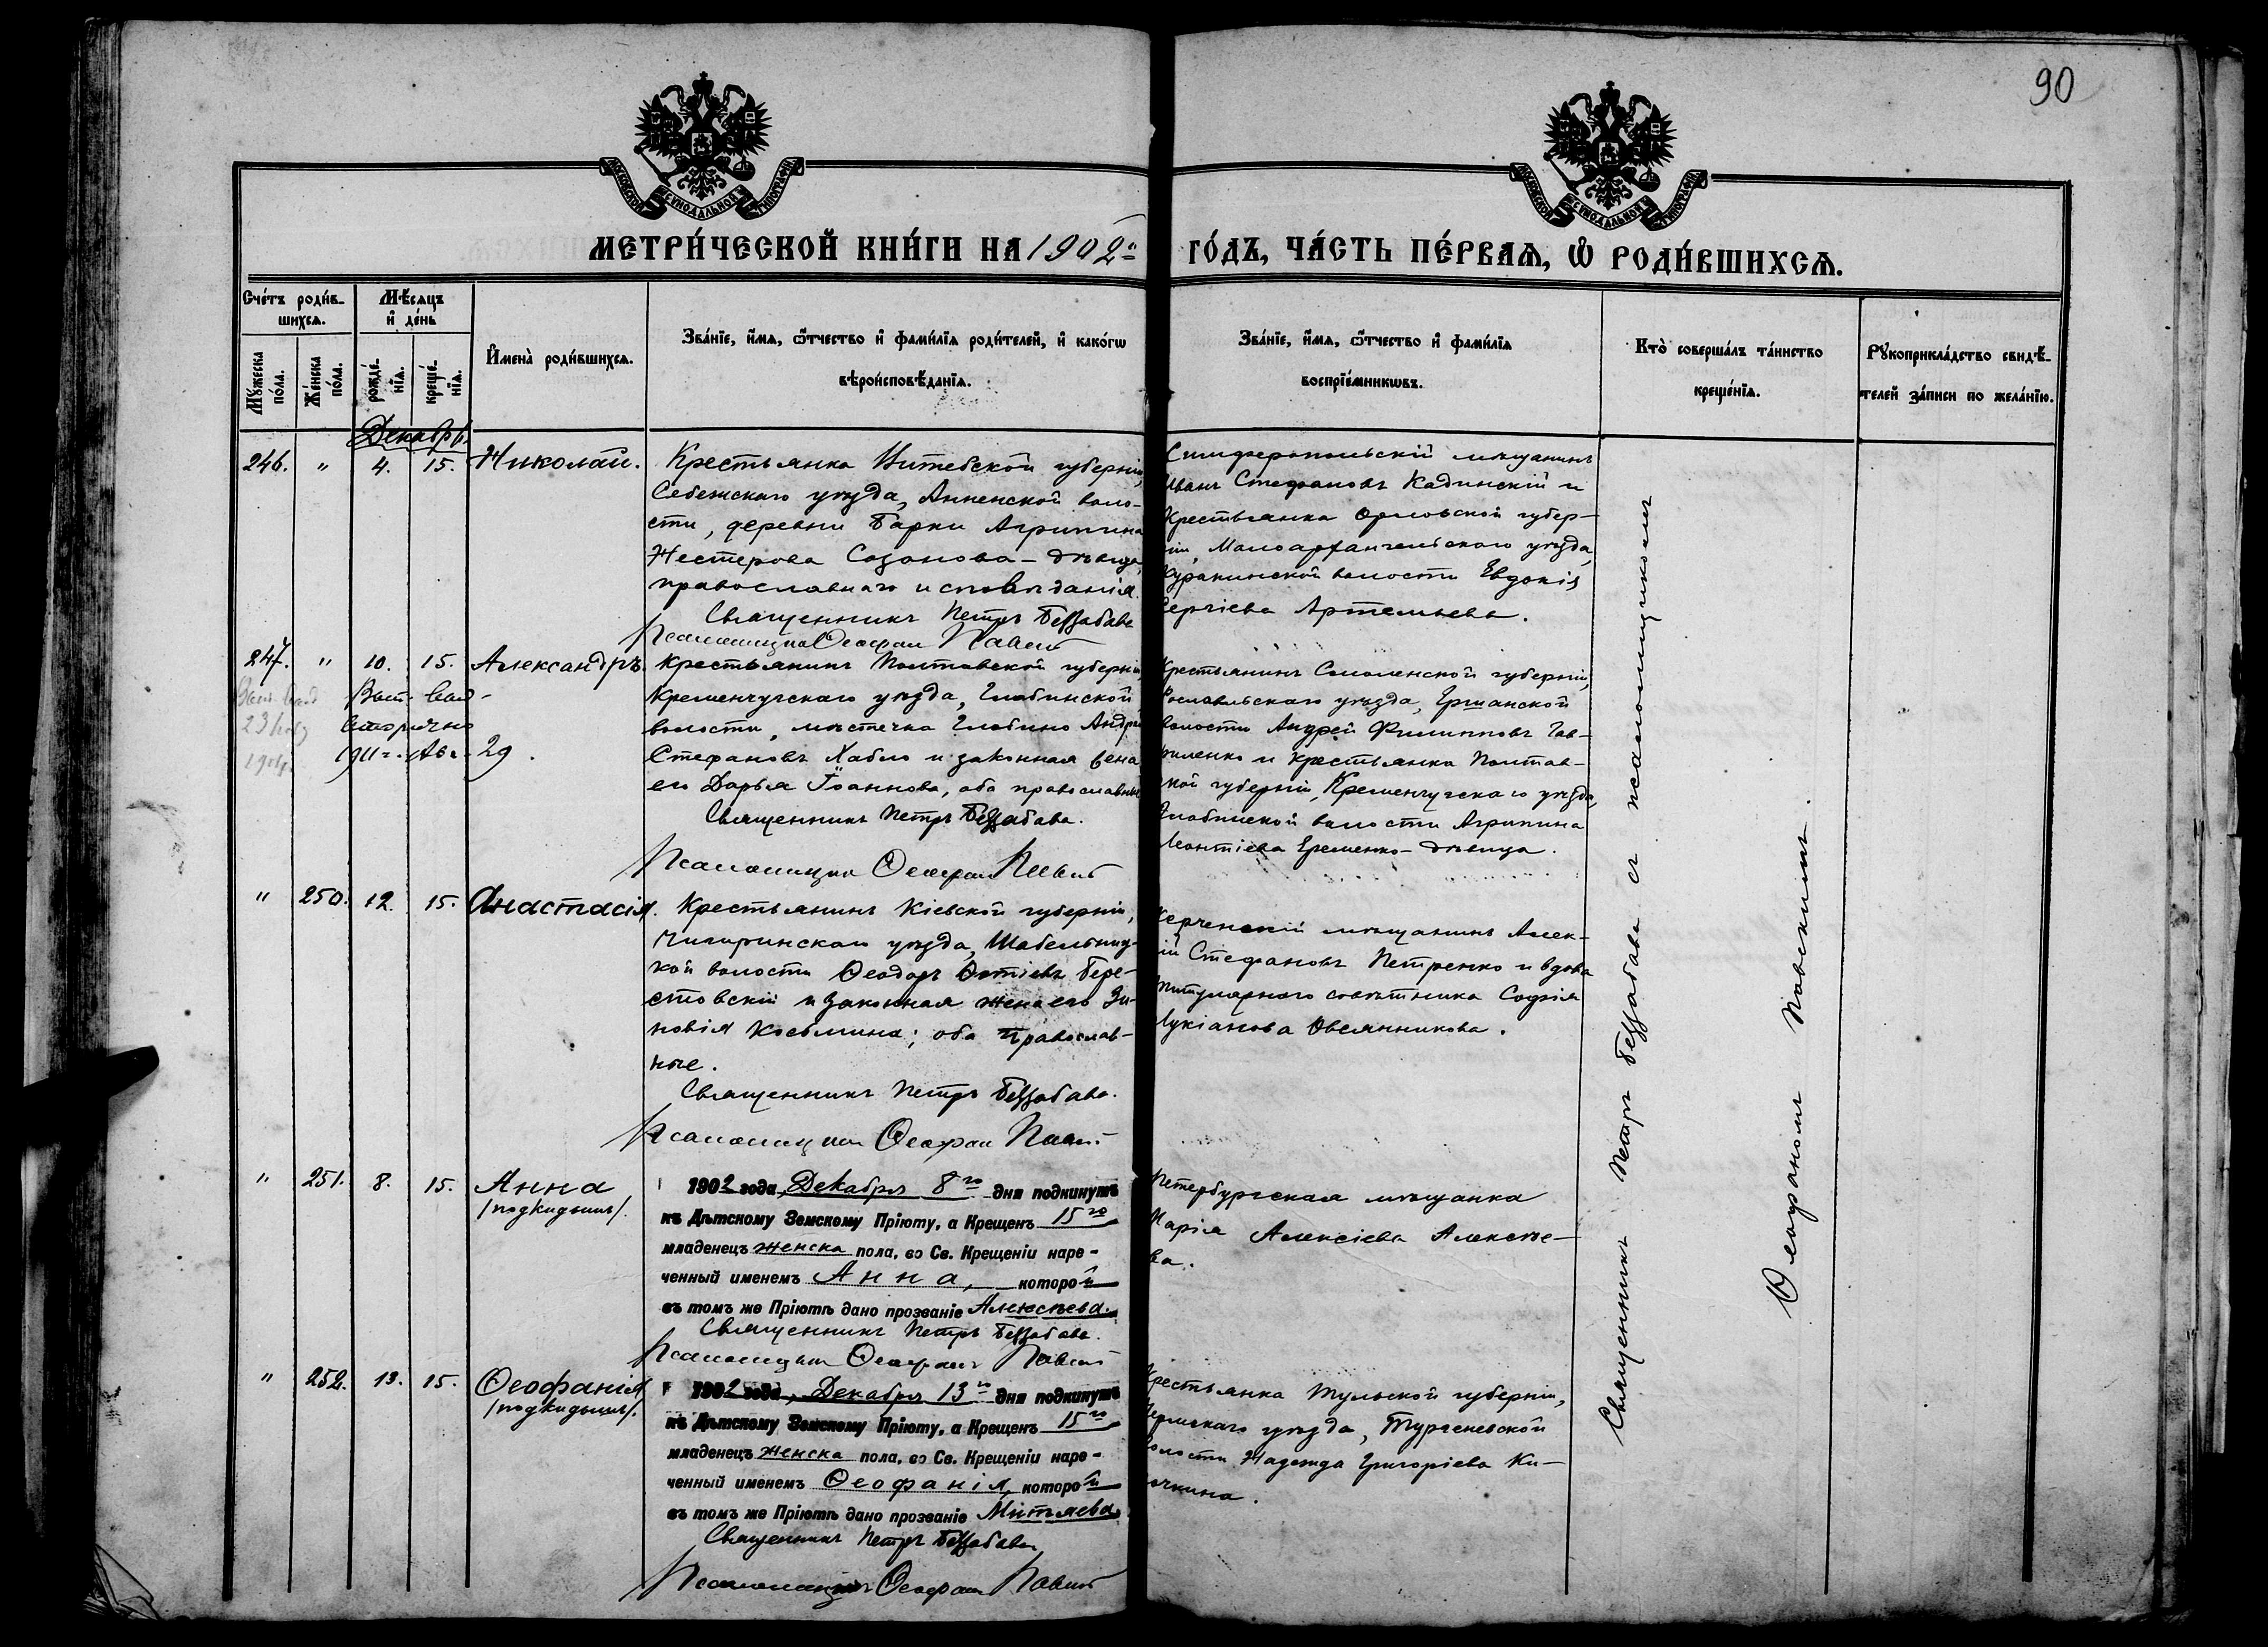 90
МОСКОВСКОЙ СѴНОДАЛЬНОЙ ТИПОГРАФІИ
МОСКОВСКОЙ СѴНОДАЛЬНОЙ ТИПОГРАФІИ
МЕТРИ́ЧЕСКОЙ КНИ́ГИ НА 1902й ГО́ДЪ, ЧА́СТЬ ПЕ́РВАѦ, Ѡ҆ РОДИ́ВШИХСѦ.
Сче́тъ роди́в-
шихсѧ.
Мꙋ́жеска по́ла.
Же́нска по́ла.
Мѣ́сѧцъ
и҆ де́нь
рожде́-
нїѧ.
креще́-
нїѧ.
И҆мена̀ роди́вшихсѧ.
Зва́нїе, и҆́мѧ, ѻ҆́тчество и҆ фами́лїѧ роди́телей, и҆ како́гѡ
вѣроисповѣ́данїѧ.
Зва́нїе, и҆́мѧ, ѻ҆́тчество и҆ фами́лїѧ
воспрїе́мникѡвъ.
Кто̀ соверша́лъ та́инство
креще́нїѧ.
Рꙋкоприкла́дство свидѣ́-
телей за́писи по жела́нїю.
Декабрь.
246. " 4. 15. Николай.
Крестьянка Витебской губерніи,
Себежскаго уѣзда, Анненской воло-
сти, деревни Барки Агрипина
Нестерова Созонова - дѣвица,
православнаго исповѣданія.
Священникъ Петръ Беззабава
Псаломщикъ Ѳеофан
Симферопольскій мѣщанинъ
Иванъ Стефановъ Кадинскій и
Крестьянка Орловской губер-
ніи, Малоархангельскаго уѣзда,
Куракинской волости Евдокія
Сергіева Артемьева.
247. " 10. 15. Александръ.
Вып. выд-
вторично
1911 г. Авг. 29.
Крестьянинъ Полтавской губерніи
Кременчугскаго уѣзда, Глобинской
волости, мѣстечка Глобино Андрей
Стефановъ Хабло и законная жена
его Дарья Іоаннова, оба православные
Священникъ Петръ Беззабава.
Псаломщикъ Ѳеофан
Крестьянинъ Смоленской губерніи,
Рославльскаго уѣзда, Ершанской
волости Андрей Филипповъ Гав-
риленко и крестьянка Полтав-
ской губерніи, Кременчугскаго уѣзда,
Глобинской волости Агрипина
Леонтіева Еременко - дѣвица.
" 250. 12. 15. Анастасія.
Крестьянинъ Кіевской губерніи,
Чигиринскаго уѣзда, Шабельниц-
кой волости Ѳеодоръ Фотіевъ Бере-
стовскій и законная жена его Зи-
новія Косьмина; оба православ-
ные.
Священникъ Петръ Беззабава.
Псаломщикъ Ѳеофан
Керченскій мѣщанинъ Алек-
сій Стефановъ Петренко и вдова
титулярнаго совѣтника Софія
Лукіанова Овсянникова.
" 251. 8. 15. Анна
/подкидышъ/.
1902 года, Декабря 8го дня подкинутъ
въ Дѣтскому Земскому Пріюту, а Крещенъ 15го
младенецъ женска пола, во Св. Крещеніи наре-
ченный именемъ Анна, которой
въ томъ же Пріютѣ дано прозваніе Алексѣева.
Священникъ Петръ Беззабава.
Псаломщикъ Ѳеофанъ
Петербургская мѣщанка
Марія Алексіева Алексѣе-
ва.
" 252. 13. 15. Ѳеофанія
/подкидышъ/.
1902 года, Декабря 13го дня подкинутъ
къ Дѣтскому Земскому Пріюту, а Крещенъ 15го
младенецъ женска пола, во Св. Крещеніи наре-
ченный именемъ Ѳеофанія, которой
въ томъ же Пріютѣ дано прозваніе Митяева
Священникъ Петръ Беззабава
Псаломщикъ Ѳеофан
Крестьянка Тульской губерніи,
уѣзда, Тургеневской
волости Надежда Григоріева Ки-
Священникъ Петръ Беззабава съ псаломщикомъ
Ѳеофаномъ Павскимъ.